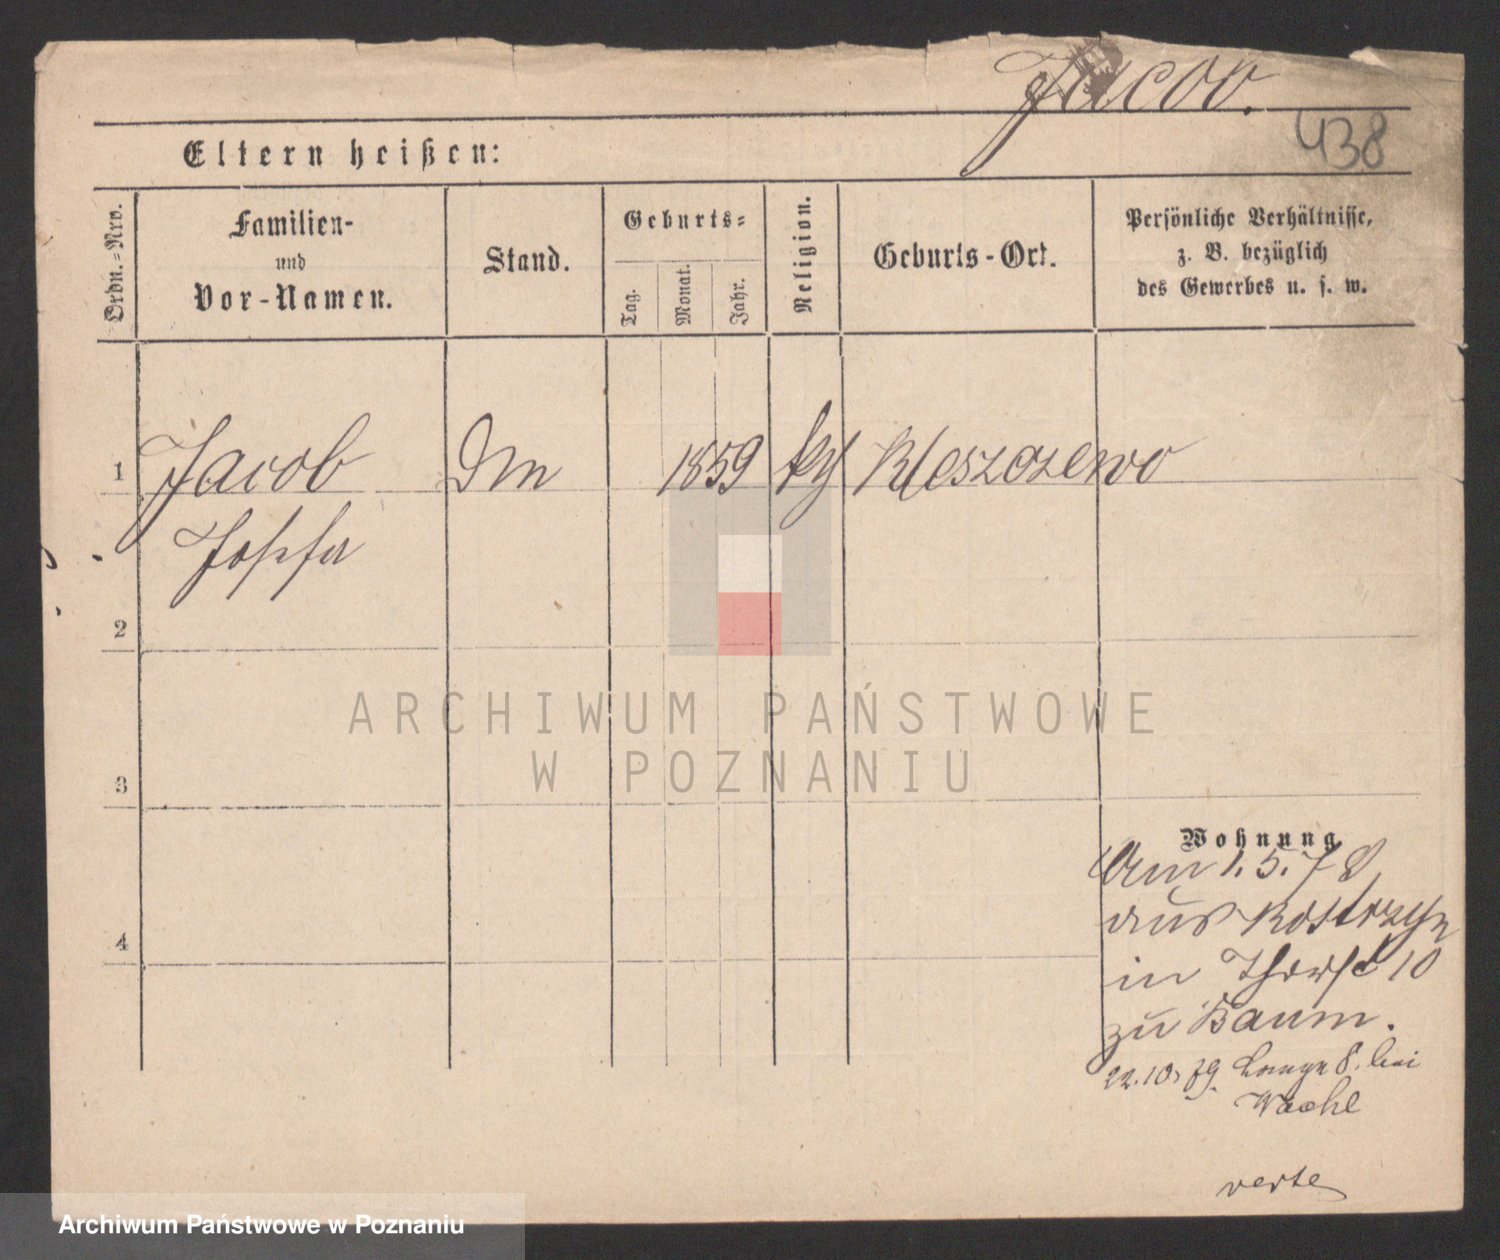 Jacob.
438
Eltern heißen:
Ordn.-Nro.
Familien-
und
Vor-Namen.
Stand.
Geburts-
Tag.
Monat.
Jahr.
Religion.
Geburts-Ort.
Persönliche Verhältnisse,
z. B. bezüglich
des Gewerbes u. s. w.
1
Jacob
Dm
1859
Kleszczewo
Josefa
2
3
4
ARCHIWUM PAŃSTWOWE
W POZNANIU
Wohnung
Am 1.5.78
aus Kostrzyn
in 10
zu Baum.
22.10.79. Lange 8. bei
verte
Archiwum Państwowe w Poznaniu